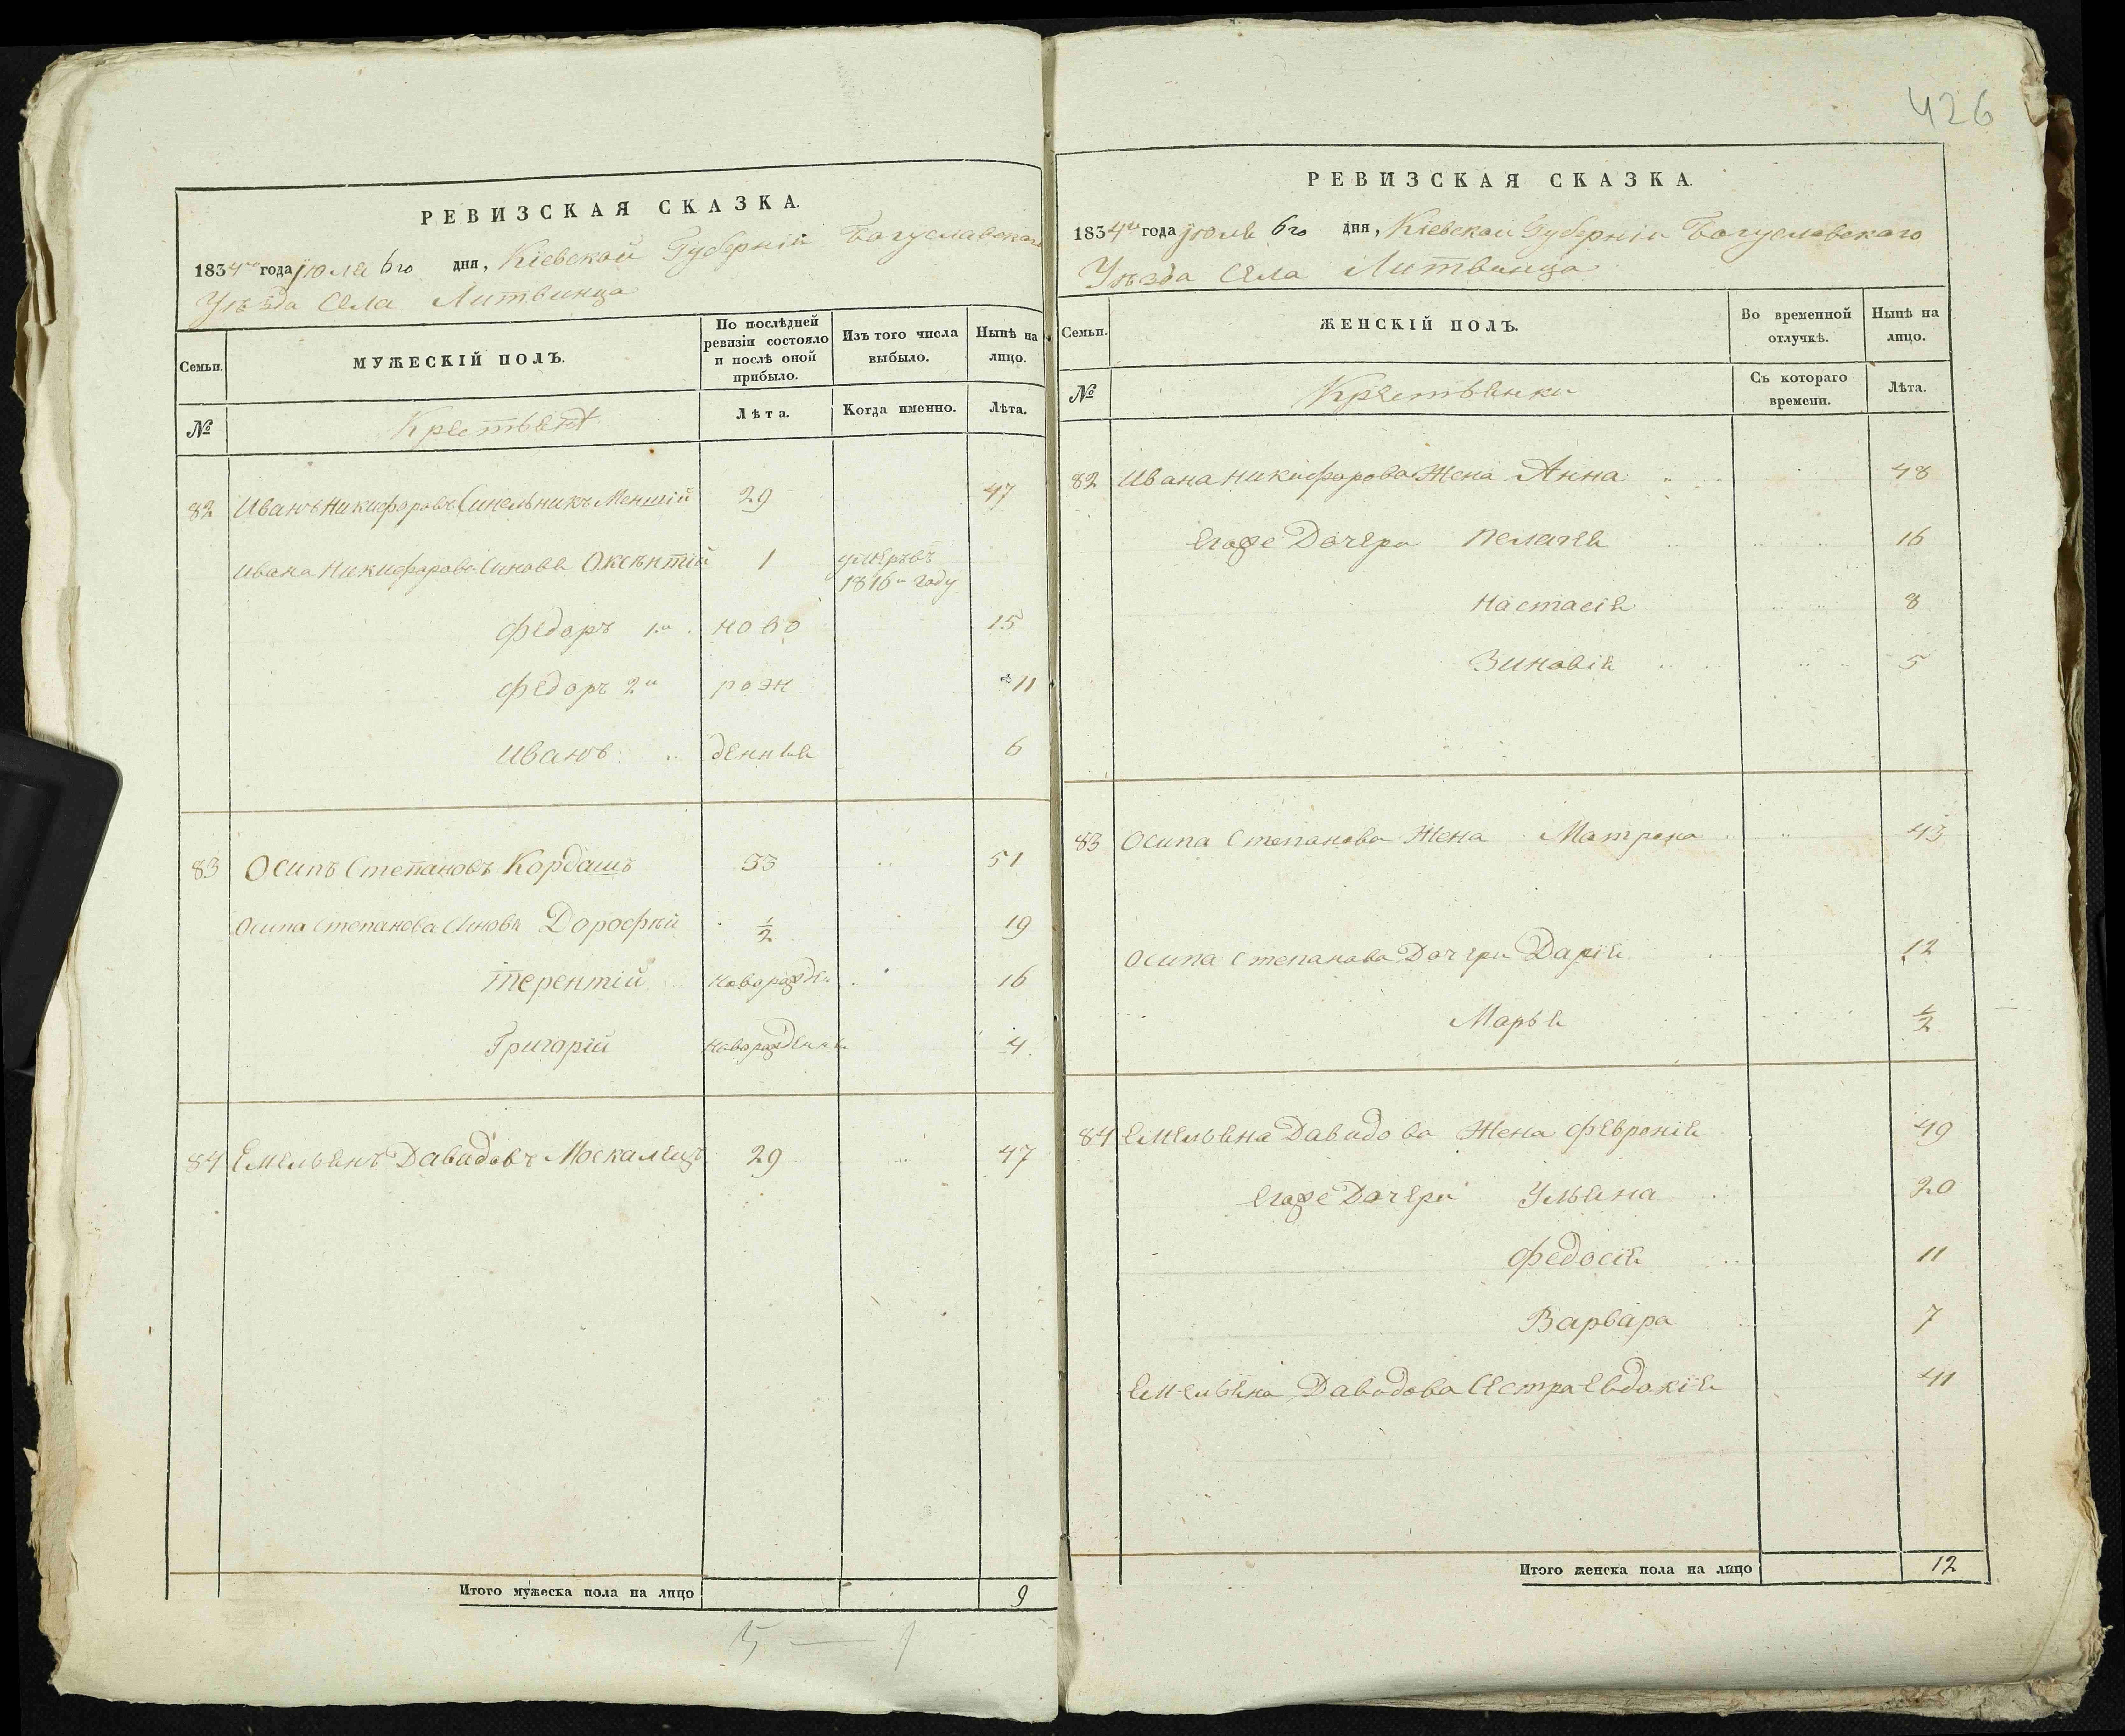 РЕВИЗСКАЯ СКАЗКА.
1834го года июля 6го дня, Кіевской Губерніи Богуславскаго
Уѣзда Села Литвинца
Семьи.
МУЖЕСКІЙ ПОЛЪ.
По послѣдней ревизіи состояло и послѣ оной прибыло.
Изъ того числа выбыло.
Нынѣ на лицо.
№
Крестьяне
Лѣта.
Когда именно.
Лѣта.
82 Иванъ Никифоровъ Синельникъ Меншій 29 47
Ивана Никифорова Синовя Оксентій 1 умеръ въ 1816м году
Федоръ 1й ново 15
Федоръ 2й рож 11
Иванъ денные 6
83 Осипъ Степановъ Кордашъ 33 51
Осипа Степанова Синовя Дорофѣй 1/2 19
Терентій новорожде. 16
Григорій новорожденн 4
84 Емельянъ Давидовъ Москалецъ 29 47
Итого мужеска пола на лицо 9
5 — 1
426
РЕВИЗСКАЯ СКАЗКА.
1834го года июля 6го дня, Кіевской Губерніи Богуславскаго
Уѣзда Села Литвинца
Семьи.
ЖЕНСКІЙ ПОЛЪ.
Во временной отлучкѣ.
Нынѣ на лицо.
№
Крестьянки
Съ котораго времени.
Лѣта.
82 Ивана Никифорова Жена Анна 48
Егоже Дочери Пелагея 16
Настасія 8
Зиновія 5
83 Осипа Степанова Жена Матрона 43
Осипа Степанова Дочери Дарія 12
Марья 1/2
84 Емельяна Давидова Жена Февронія 49
Егоже Дочери Ульяна 20
Федосія 11
Варвара 7
Емельяна Давидова Сестра Евдокія 41
Итого женска пола на лицо 12